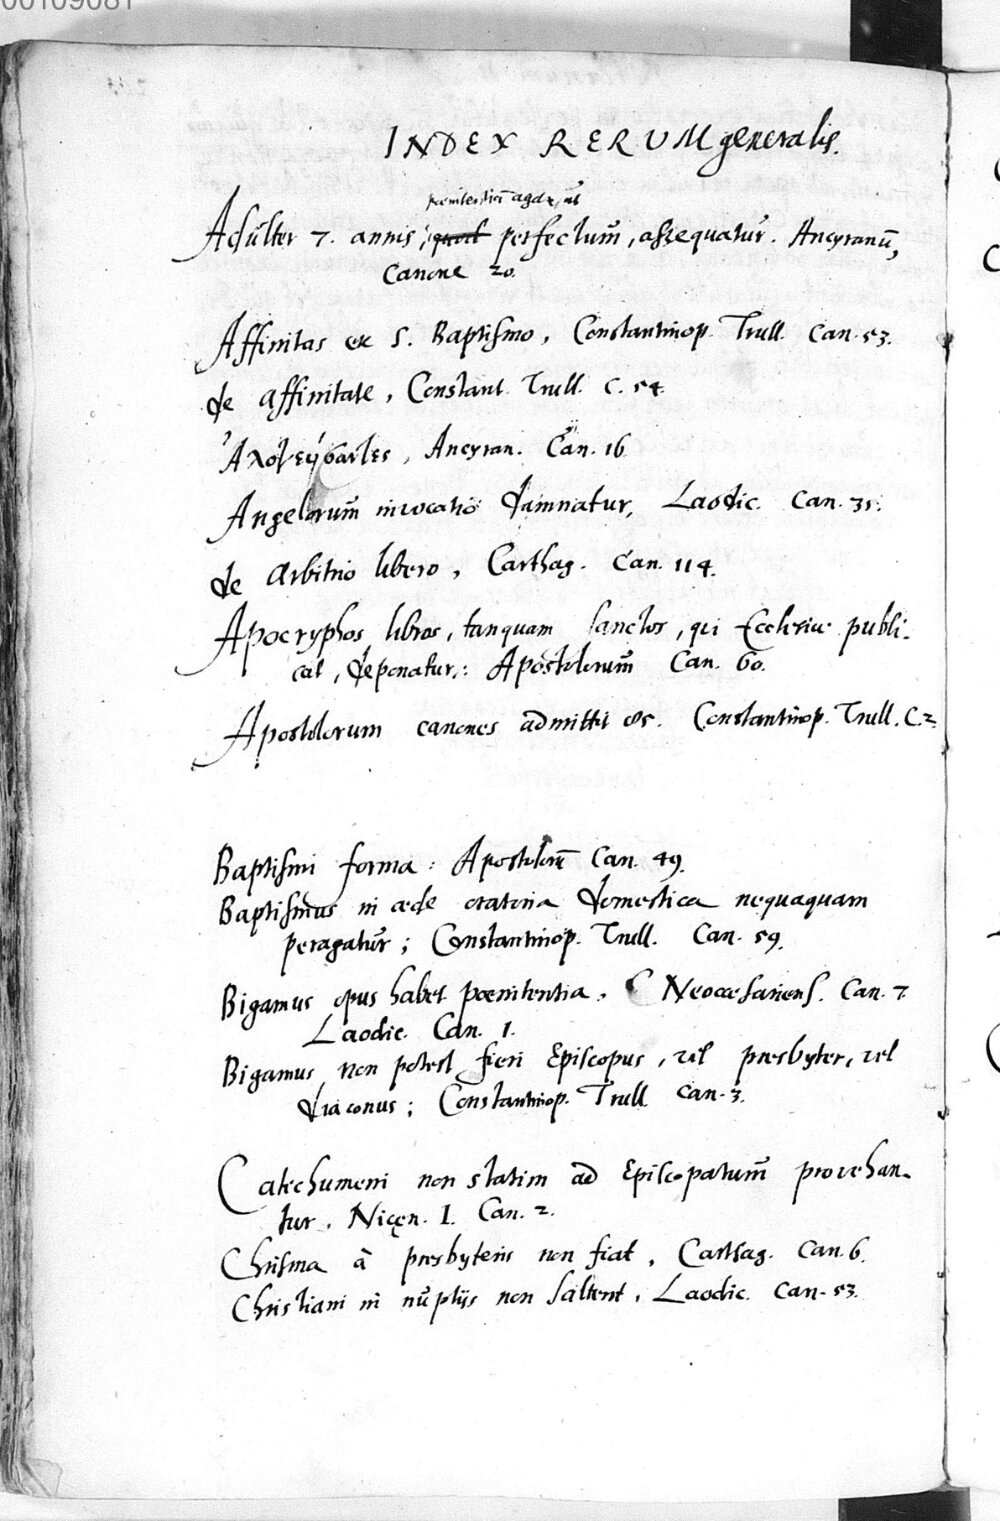 00109081
INDEX RERUM generalis.
pœnitentiā agat, ut
Adulter 7. annis, quod perfectum, assequatur. Ancyranū,
Canone 20.
Affinitas ex S. Baptismo, Constantinop. Trull. Can. 53.
de affinitate, Constant. Trull. C. 54.
Ancyran. Can. 16.
Angelorum invocatio damnatur, Laodic. Can. 35.
de Arbitrio libero, Carthag. Can. 114.
Apocryphos libros, tanquam sanctos, qui Ecclesiæ publi-
cat, deponatur: Apostolorum Can. 60.
Apostolorum canones admitti &c. Constantinop. Trull. C. 2.
Baptismi forma: Apostolorū Can. 49.
Baptismus in æde oratoria domestica nequaquam
peragatur; Constantinop. Trull. Can. 59.
Bigamus opus habet pœnitentia. Neocæsariens. Can. 7.
Laodic. Can. 1.
Bigamus non potest fieri Episcopus, vel presbyter, vel
diaconus; Constantinop. Trull. Can. 3.
Catechumeni non statim ad Episcopatum provehan-
tur, Nicęn. I. Can. 2.
Chrisma à presbyteris non fiat, Carthag. Can. 6.
Christiani in nuptijs non saltent, Laodic. Can. 53.